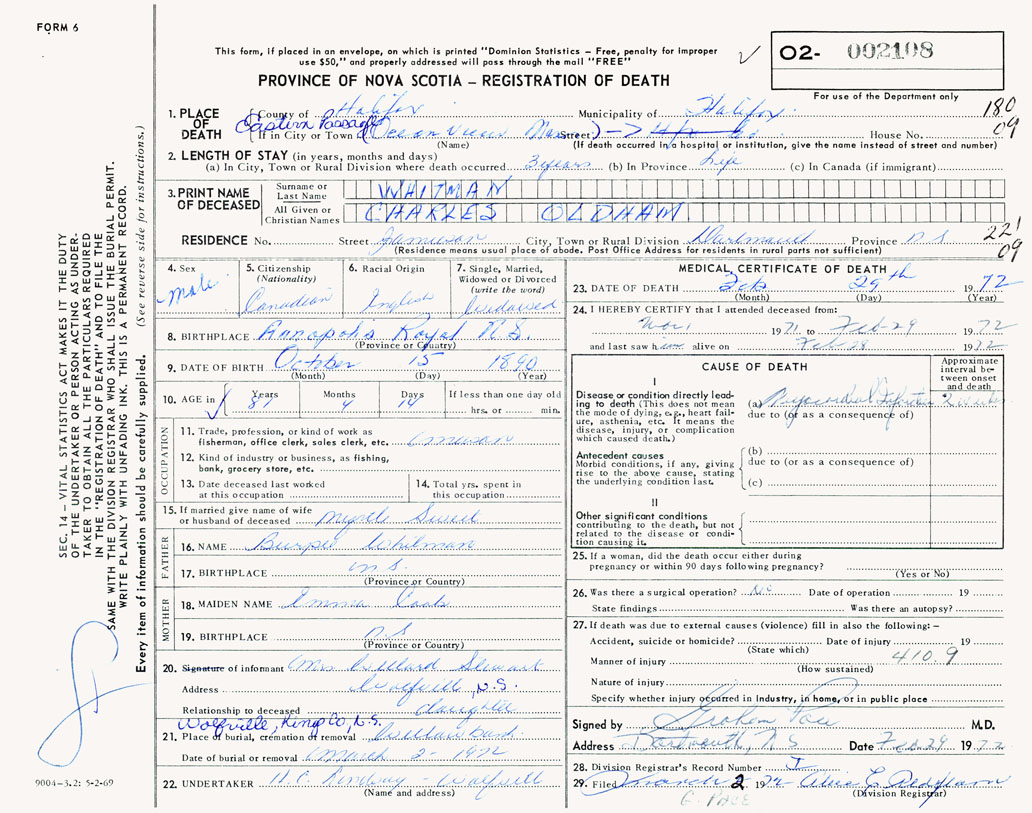 FORM 6
This form, if placed in an envelope, on which is printed "Dominion Statistics – Free, penalty for improper
use $50," and properly addressed will pass through the mail "FREE"
PROVINCE OF NOVA SCOTIA – REGISTRATION OF DEATH
✓
O2- 002108
For use of the Department only
180
09
1. PLACE OF DEATH
County of Halifax Municipality of Halifax
Eastern Passage
If in City or Town (Ocean View Street) House No.
(Name) (If death occurred in a hospital or institution, give the name instead of street and number)
2. LENGTH OF STAY (in years, months and days)
(a) In City, Town or Rural Division where death occurred 3 years (b) In Province Life (c) In Canada (if immigrant)
3. PRINT NAME OF DECEASED
Surname or Last Name WHITMAN
All Given or Christian Names CHARLES OLDHAM
221
09
RESIDENCE No. Street Jamieson City, Town or Rural Division Dartmouth Province N S
(Residence means usual place of abode. Post Office Address for residents in rural parts not sufficient)
4. Sex Male
5. Citizenship (Nationality) Canadian
6. Racial Origin English
7. Single, Married, Widowed or Divorced (write the word) Widowed
8. BIRTHPLACE Annapolis Royal N.S.
(Province or Country)
9. DATE OF BIRTH October 15 1890
(Month) (Day) (Year)
10. AGE in Years 81 Months 4 Days 14 If less than one day old hrs. or min.
OCCUPATION
11. Trade, profession, or kind of work as
fisherman, office clerk, sales clerk, etc.
12. Kind of industry or business, as fishing,
bank, grocery store, etc.
13. Date deceased last worked
at this occupation
14. Total yrs. spent in
this occupation
15. If married give name of wife
or husband of deceased Myrtle Sweet
FATHER
16. NAME Burpee Whitman
17. BIRTHPLACE N.S.
(Province or Country)
MOTHER
18. MAIDEN NAME Emma
19. BIRTHPLACE N.S
(Province or Country)
20. Signature of informant Mrs Willard Stewart
Address Wolfville, N.S.
Relationship to deceased daughter
Wolfville, Kings Co, N.S.
21. Place of burial, cremation or removal
Date of burial or removal March 2 - 1972
22. UNDERTAKER Lindsay - Wolfville
(Name and address)
MEDICAL CERTIFICATE OF DEATH
23. DATE OF DEATH Feb 29th 1972
(Month) (Day) (Year)
24. I HEREBY CERTIFY that I attended deceased from:
Nov. 1971 to Feb-29 1972
and last saw him alive on Feb 28 1972
CAUSE OF DEATH
Approximate interval between onset and death
I
Disease or condition directly leading to death (This does not mean the mode of dying, e.g., heart failure, asthenia, etc. It means the disease, injury, or complication which caused death.)
(a) Myocardial Infarction 2 weeks
due to (or as a consequence of)
Antecedent causes
Morbid conditions, if any, giving rise to the above cause, stating the underlying condition last.
(b)
due to (or as a consequence of)
(c)
II
Other significant conditions
contributing to the death, but not related to the disease or condition causing it.
25. If a woman, did the death occur either during
pregnancy or within 90 days following pregnancy?
(Yes or No)
26. Was there a surgical operation? No Date of operation 19
State findings Was there an autopsy?
27. If death was due to external causes (violence) fill in also the following: –
Accident, suicide or homicide? Date of injury 19
(State which)
410.9
Manner of injury
(How sustained)
Nature of injury
Specify whether injury occurred in industry, in home, or in public place
Signed by Graham Pace M.D.
Address Dartmouth, N S Date Feb 29 1972
28. Division Registrar's Record Number
29. Filed March 2 1972
(Division Registrar)
G. PACE
SEC. 14 – VITAL STATISTICS ACT MAKES IT THE DUTY
OF THE UNDERTAKER OR PERSON ACTING AS UNDER-
TAKER TO OBTAIN ALL THE PARTICULARS REQUIRED
IN THE "REGISTRATION OF DEATH" AND TO FILE THE
SAME WITH THE DIVISION REGISTRAR WHO SHALL ISSUE THE BURIAL PERMIT.
WRITE PLAINLY WITH UNFADING INK. THIS IS A PERMANENT RECORD.
Every item of information should be carefully supplied. (See reverse side for instructions.)
9004-3.2: 5-2-69